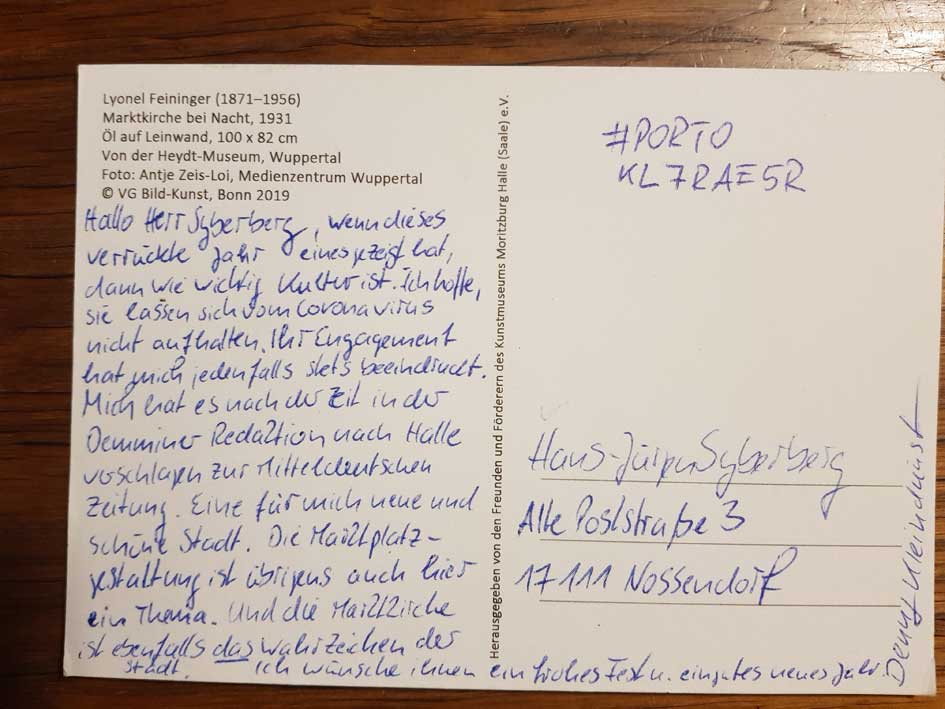 Lyonel Feininger (1871–1956)
Marktkirche bei Nacht, 1931
Öl auf Leinwand, 100 x 82 cm
Von der Heydt-Museum, Wuppertal
Foto: Antje Zeis-Loi, Medienzentrum Wuppertal
© VG Bild-Kunst, Bonn 2019
Hallo Herr Syberberg, wenn dieses
verrückte Jahr eines gezeigt hat,
dann wie wichtig Kultur ist. Ich hoffe,
sie lassen sich vom Coronavirus
nicht aufhalten. Ihr Engagement
hat mich jedenfalls stets beeindruckt.
Mich hat es nach der Zeit in der
Demminer Redaktion nach Halle
verschlagen zur Mitteldeutschen
Zeitung. Eine für mich neue und
schöne Stadt. Die Marktplatz-
gestaltung ist übrigens auch hier
ein Thema. Und die Marktkirche
ist ebenfalls das Wahrzeichen der
Stadt. Ich wünsche ihnen ein frohes Fest u. ein gutes neues Jahr.
Denny Kleindienst
Herausgegeben von den Freunden und Förderern des Kunstmuseums Moritzburg Halle (Saale) e.V.
#PORTO
KL7RAE5R
Hans-Jürgen Syberberg
Alte Poststraße 3
17111 Nossendorf